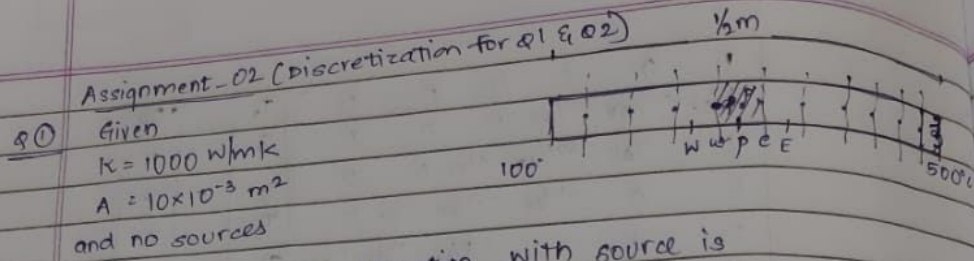 Assignment-02 (Discretization for Q1 & Q2)
1/2m
Q①
Given
K = 1000 W/mK
A = 10×10⁻³ m²
and no sources
100°
W w P e E
500°C
with source is